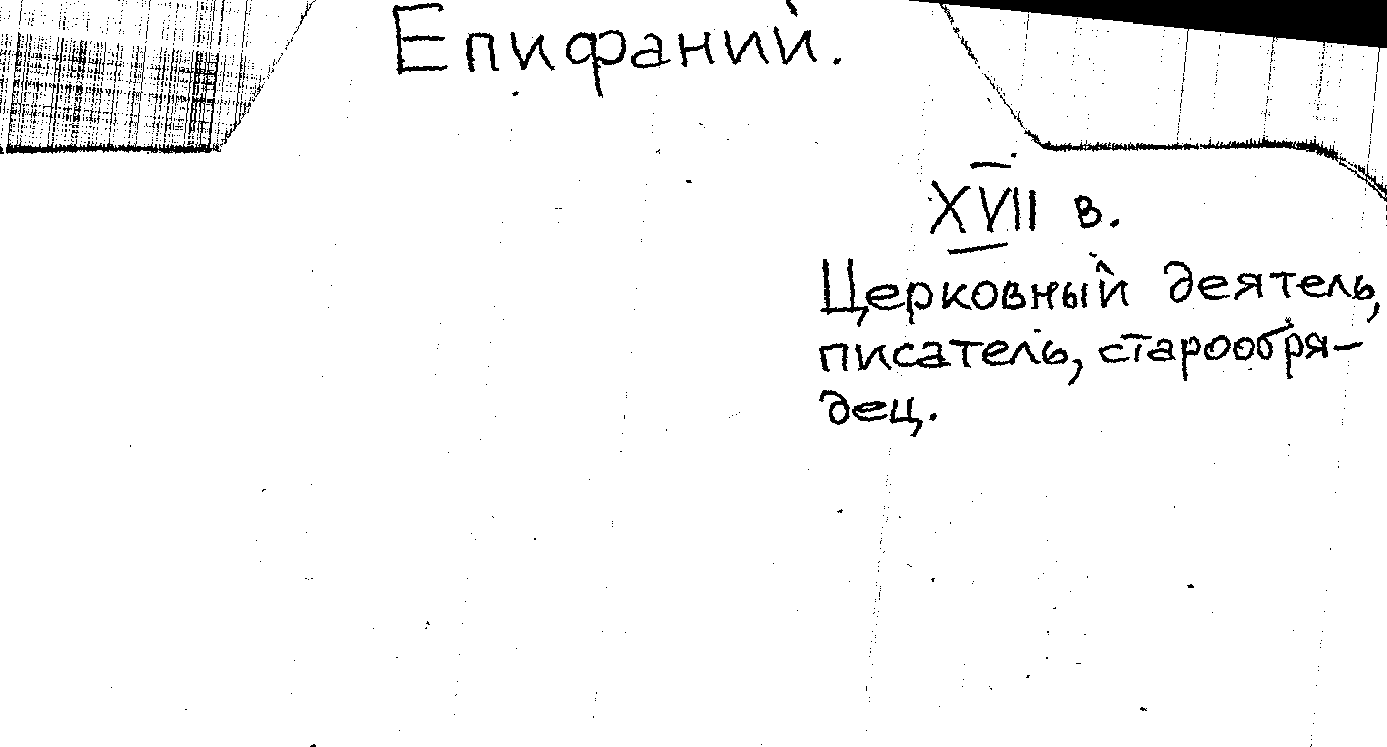 Епифаний.
XVII в.
Церковный деятель,
писатель, старообря-
дец.